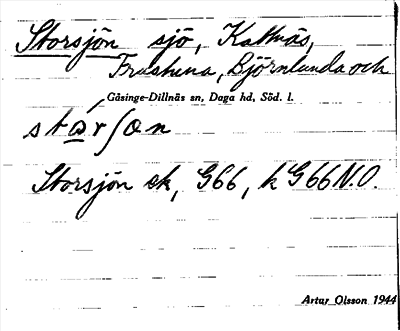 Storsjön sjö, Kattnäs,
Frustuna, Björnlunda och
Gåsinge-Dillnäs sn, Daga hd, Söd. l.
Storsjön ek, G66, k G66 N.O.
Artur Olsson 1944